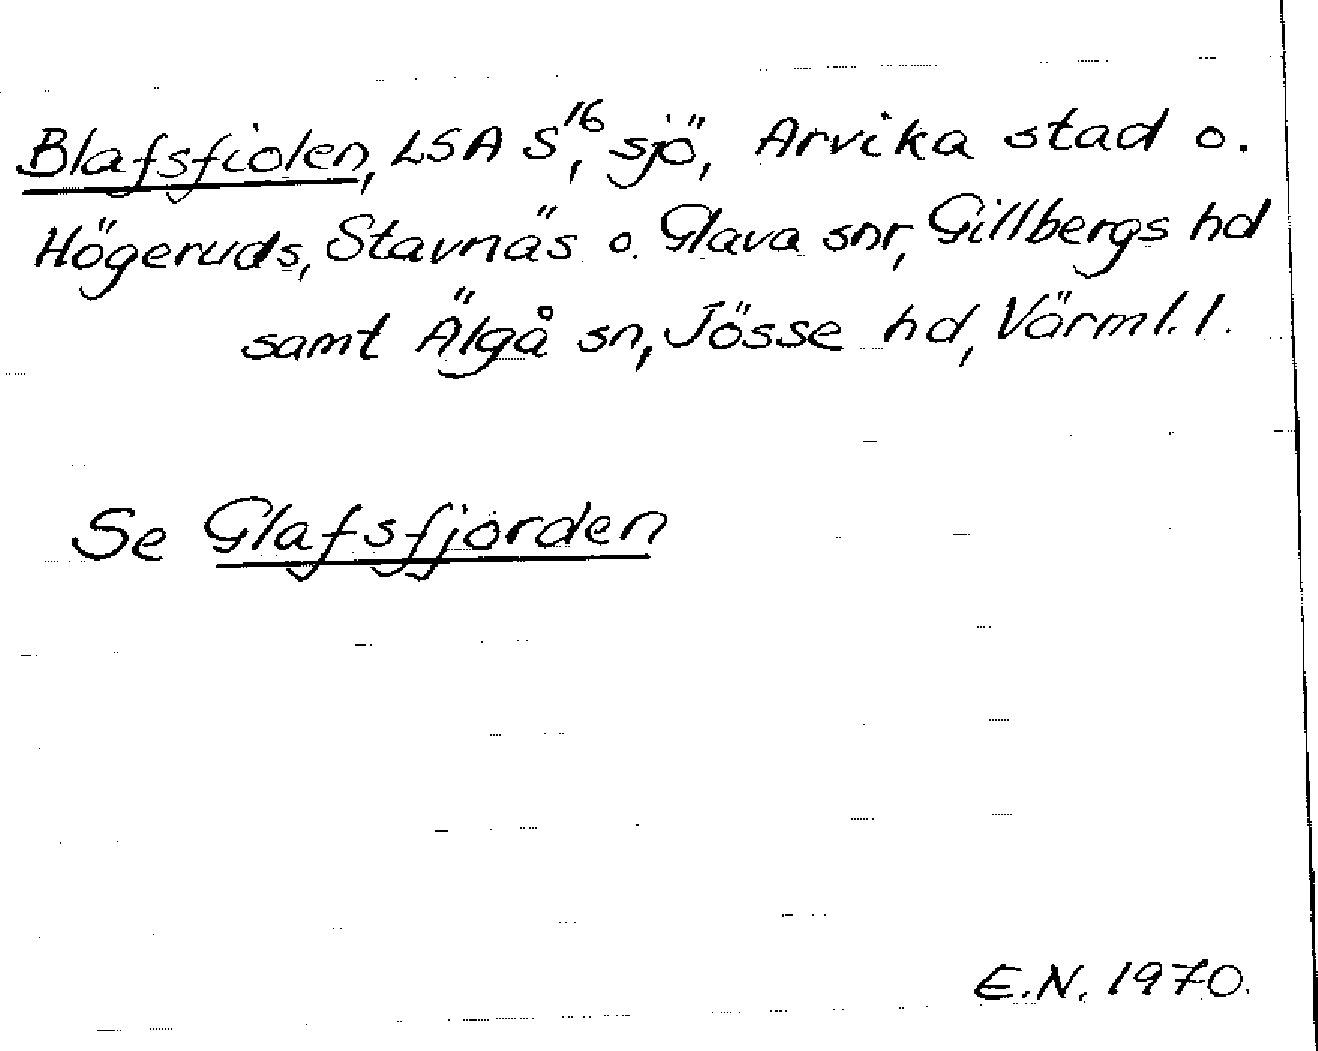 Blafsfiolen, LSA S¹⁶, sjö, Arvika stad o.
Högeruds, Stavnäs o. Glava snr, Gillbergs hd
samt Älgå sn, Jösse hd, Värml. l.
Se Glafsfjorden
E.N. 1970.